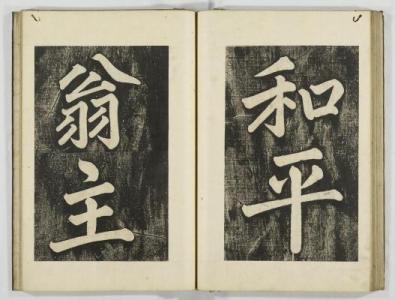 和平
翁主